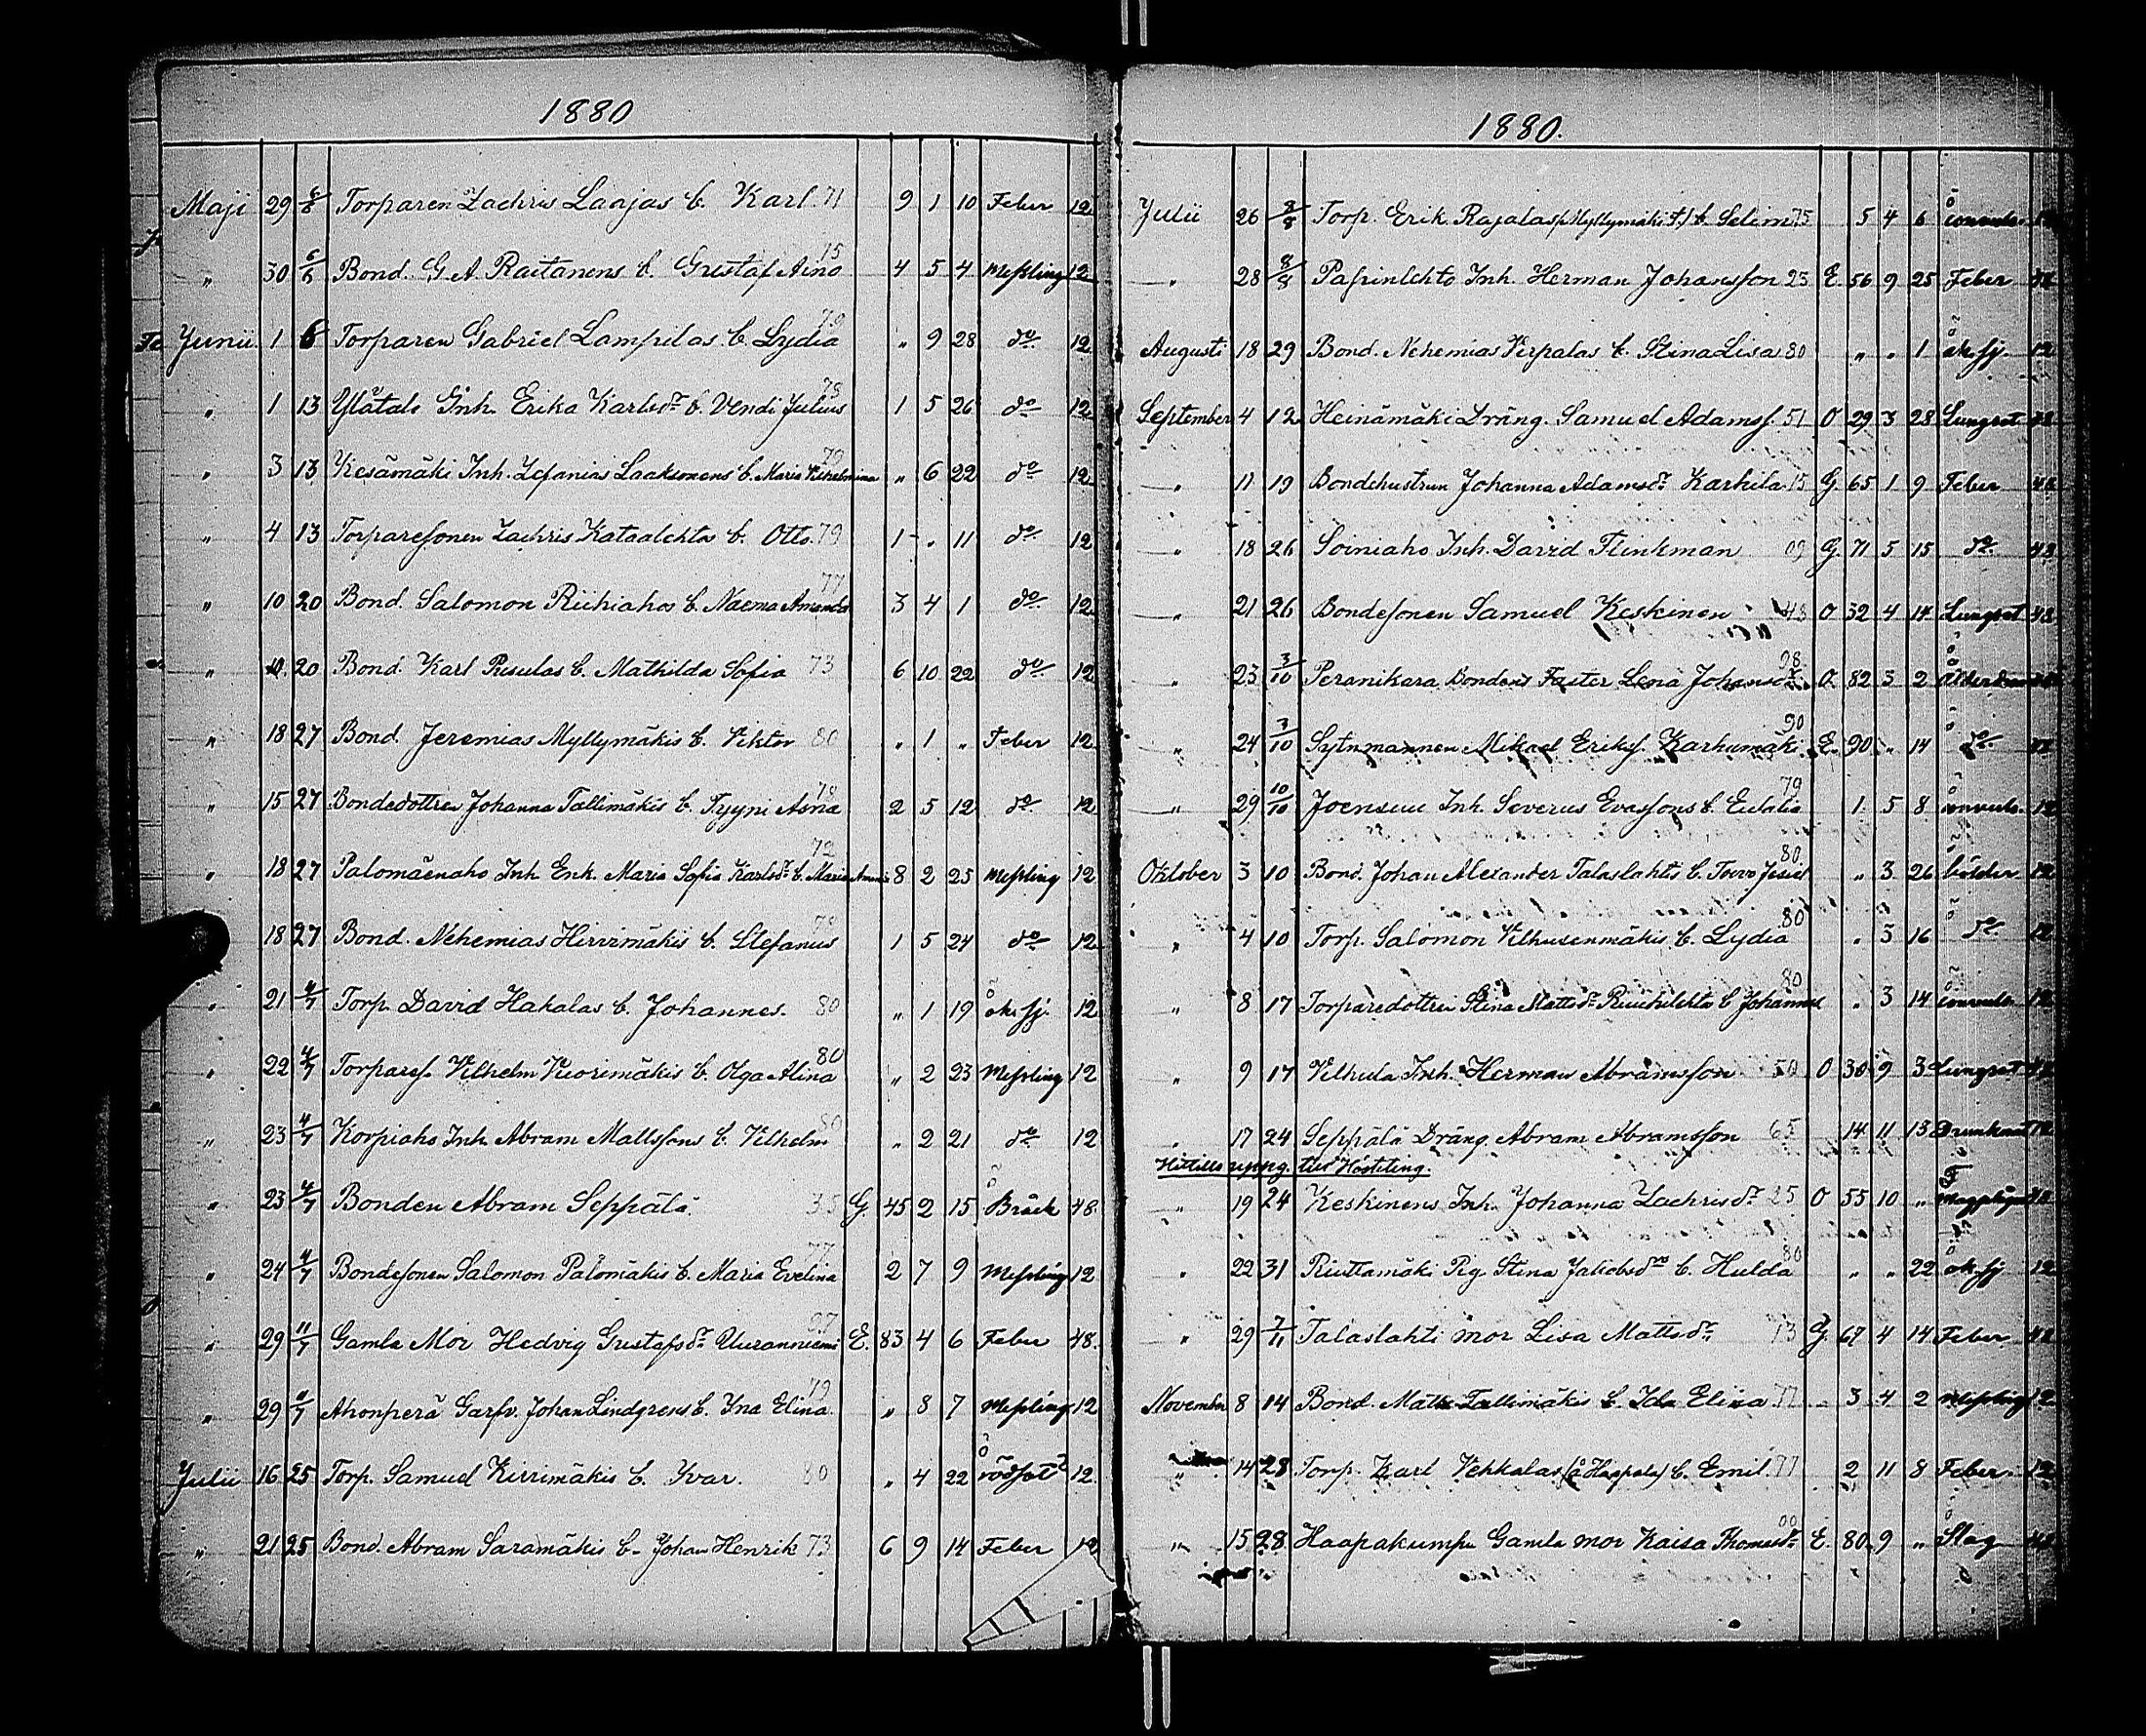 1880
Maji 29 6/6 Torparen Zachris Laajas b. Karl 71 9 1 10 Feber 12
„ 30 6/6 Bond. G. A. Raitanens b. Gustaf Arno 75 4 5 4 Messling 12
Junii 1 6 Torparen Gabriel Lampilas b. Lydia 79 „ 9 28 do 12
„ 1 13 Ylätalo Inh. Erika Karlsdr b. Vendi Julius 78 1 5 26 do 12
„ 3 13 Kesämäki Inh. Zefanias Laaksonens b. Maria Vilhelmina 79 „ 6 22 do 12
„ 4 13 Torparesonen Zachris Kataalehtos b. Otto 79 1 „ 11 do 12
„ 10 20 Bond. Salomon Riihiahos b. Naema Amanda 77 3 4 1 do 12
„ 20 Bond. Karl Pesulas b. Mathilda Sofia 73 6 10 22 do 12
„ 18 27 Bond. Jeremias Myllymäkis b. Viktor 80 „ 1 „ Feber 12
„ 15 27 Bondedottren Johanna Tallimäkis b. Tyyni Asna 78 2 5 12 do 12
„ 18 27 Palomäenaho Inh. Enk. Maria Sofia Karlsdr b. Maria 72 8 2 25 Messling 12
„ 18 27 Bond. Nehemias Hirvimäkis b. Stefanus 79 1 5 24 do 12
„ 21 4/7 Torp. David Hakalas b. Johannes. 80 „ 1 19 ok. sj. 12
„ 22 4/7 Torpares. Vilhelm Vuorimäkis b. Olga Alina 80 „ 2 23 Messling 12
„ 23 4/7 Korpiaho Inh. Abram Mattssons b. Vilhelm 80 „ 2 21 do 12
„ 23 4/7 Bonden Abram Seppälä. 35 G. 45 2 15 Bråck 48
„ 24 4/7 Bondesonen Salomon Palomäkis b. Maria Evelina 77 2 7 9 Messling 12
„ 29 11/7 Gamla Mor Hedvig Gustafsdr Uuranniemi 97 E. 83 4 6 Feber 48.
„ 29 11/7 Ahonperä Garfv. Johan Lindgrens b. Ina Elina. 79 „ 8 7 Messling 12
Julii 16 25 Torp. Samuel Kivimäkis b. Ivar. 80 „ 4 22 rödsot 12.
„ 21 25 Bond. Abram Saramäkis b. Johan Henrik 73 6 9 14 Feber 12
1880.
Julii 26 8/8 Torp. Erik Rajalas (Myllymäki t.) b. Selim 75 5 4 6 12
„ 28 8/8 Pasinlehto Inh. Herman Johansson 23 E. 56 9 25 Feber 48
Augusti 18 29 Bond. Nehemias Vespalas b. Stina Lisa 80 „ „ 1 ok. sj. 12
September 4 12 Heinämäki Dräng. Samuel Adamss. 51 O 29 3 28 Lungsot 48
„ 11 19 Bondehustrun Johanna Adamsdr Karhila 15 G. 65 1 9 Feber 48
„ 18 26 Soiniaho Inh. David Flinkman 09 G. 71 5 15 do 48
„ 21 26 Bondesonen Samuel Keskinen 48 O 32 4 14 Lungsot 48
„ 23 3/10 Peranikara Bondens Faster Lena Johansdr 98 O. 82 3 2
„ 24 3/10 Sytnmannen Mikael Erikss. Karhumäki 90 E. 90 „ 14 do 48
„ 29 10/10 Joensuu Inh. Severus Evassons b. Eulalia 79 1 5 8 12
Oktober 3 10 Bond. Johan Alexander Talaslahtis b. Toivo 80 „ 3 26 bölder 12
„ 4 10 Torp. Salomon Vilhusenmäkis b. Lydia 80 „ 3 16 do 12
„ 8 17 Torparedottren Stina Mattsdr b. 80 „ 3 14 12
„ 9 17 Vilhula Inh. Herman Abramsson 50 O 30 9 3 Lungsot 48
„ 17 24 Seppälä Dräng. Abram Abramsson 65 14 11 13 12
Hittills uppg. till Hösteting.
„ 19 24 Keskinens Inh. Johanna Zachrisdr 25 O 55 10 „
„ 22 31 Riuttamäki Pig. Stina Jakobsdrs b. Hulda 80 „ „ 22 ok. sj. 12
„ 29 7/11 Talaslahti mor Lisa Mattsdr 13 G. 67 4 14 Feber 48
November 8 14 Bond. Matts Tallimäkis b. Ida Elisa 77 3 4 2 Messling 12
„ 14 28 Torp. Karl Vehkalas (å Haapala) b. Emil 77 2 11 8 Feber. 12
„ 15 28 Haapakumpu Gamla mor Kaisa Thomasdr 00 E. 80 9 „ Slag 48